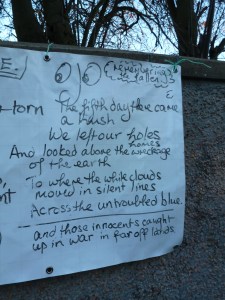 E
remembering
the fallen
torn
The fifth day there came
a hush
We left our holes
homes
And looked above the wreckage
of the earth
To where the white clouds
moved in silent lines
Across the untroubled blue.
and those innocents caught
up in war in far off lands.